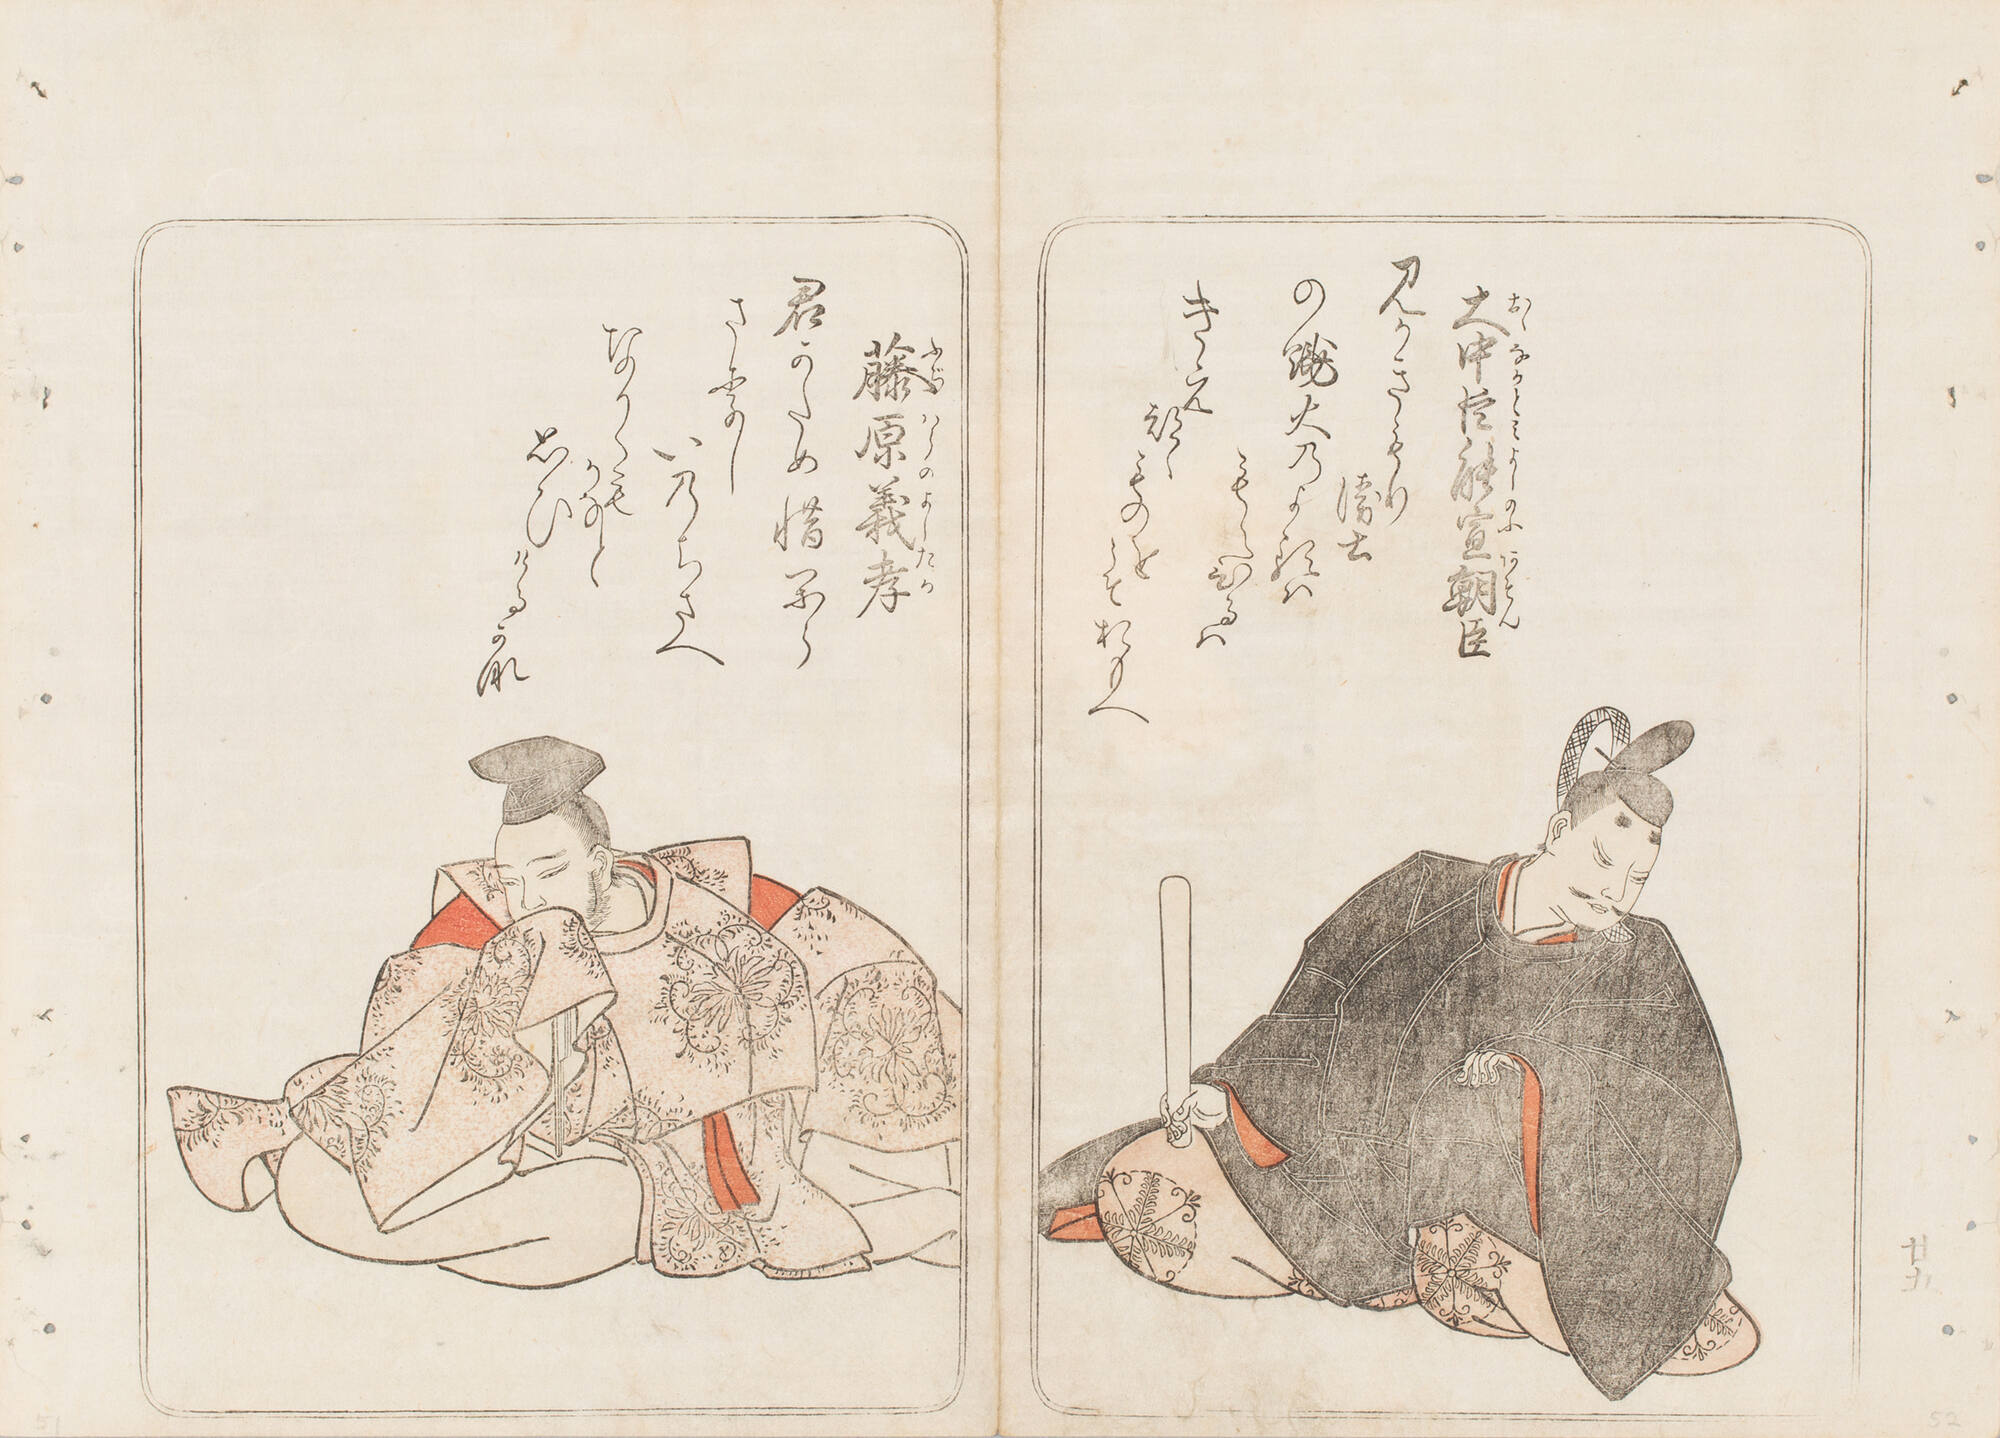 大中臣能宣朝臣
おゝなかとミよしのふあそん
見かきもり
衛士
の火乃よるハ
もえひるハ
きえ
つゝ
ものをこそおもへ
廿五
52
藤原義孝
ふぢハらのよしたか
君かため惜から
さりし
いのちさへ
なかくも
かなと
思ひ
けるかな
51